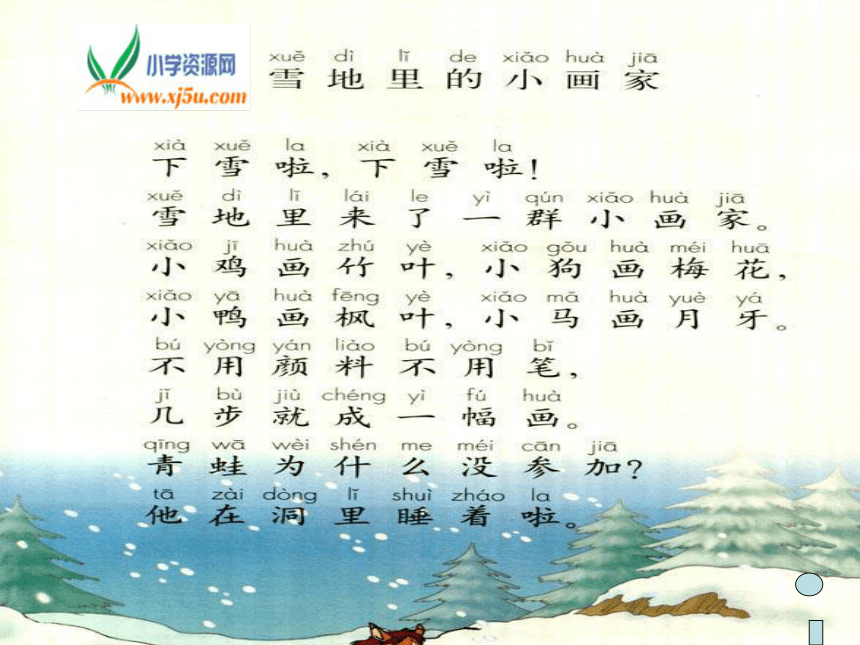 小学资源网
www.xj5u.com
xuě dì lǐ de xiǎo huà jiā
雪地里的小画家
xià xuě la xià xuě la
下雪啦，下雪啦！
xuě dì lǐ lái le yì qún xiǎo huà jiā
雪地里来了一群小画家。
xiǎo jī huà zhú yè xiǎo gǒu huà méi huā
小鸡画竹叶，小狗画梅花，
xiǎo yā huà fēng yè xiǎo mǎ huà yuè yá
小鸭画枫叶，小马画月牙。
bú yòng yán liào bú yòng bǐ
不用颜料不用笔，
jǐ bù jiù chéng yì fú huà
几步就成一幅画。
qīng wā wèi shén me méi cān jiā
青蛙为什么没参加？
tā zài dòng lǐ shuì zháo la
他在洞里睡着啦。